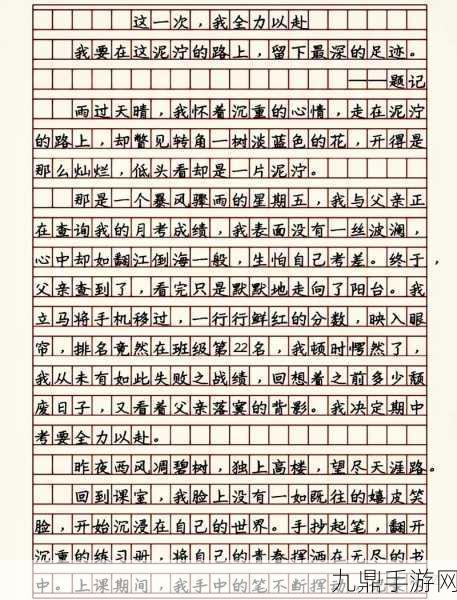 这一次，我全力以赴
我要在这泥泞的路上，留下最深的足迹。
——题记
雨过天晴，我怀着沉重的心情，走在泥泞
的路上，却瞥见转角一树淡蓝色的花，开得是
那么灿烂，低头看却是一片泥泞。
那是一个暴风骤雨的星期五，我与父亲正
在查询我的月考成绩，我表面没有一丝波澜，
心中却如翻江倒海一般，生怕自己考差。终于，
父亲查到了，看完只是默默地走向了阳台。我
立马将手机移过，一行行鲜红的分数，映入眼
帘，排名竟然在班级第22名，我顿时愕然了，
我从未有如此失败之战绩，回想着之前多少颓
废日子，又看着父亲落寞的背影。我决定期中
考要全力以赴。
昨夜西风凋碧树，独上高楼，望尽天涯路。
回到课室，我脸上没有一如既往的嬉皮笑
脸，开始沉浸在自己的世界。手抄起笔，翻开
沉重的练习册，将自己的青春挥洒在无尽的书
中。上课期间，我手中的笔不断挥动
九鼎手游网